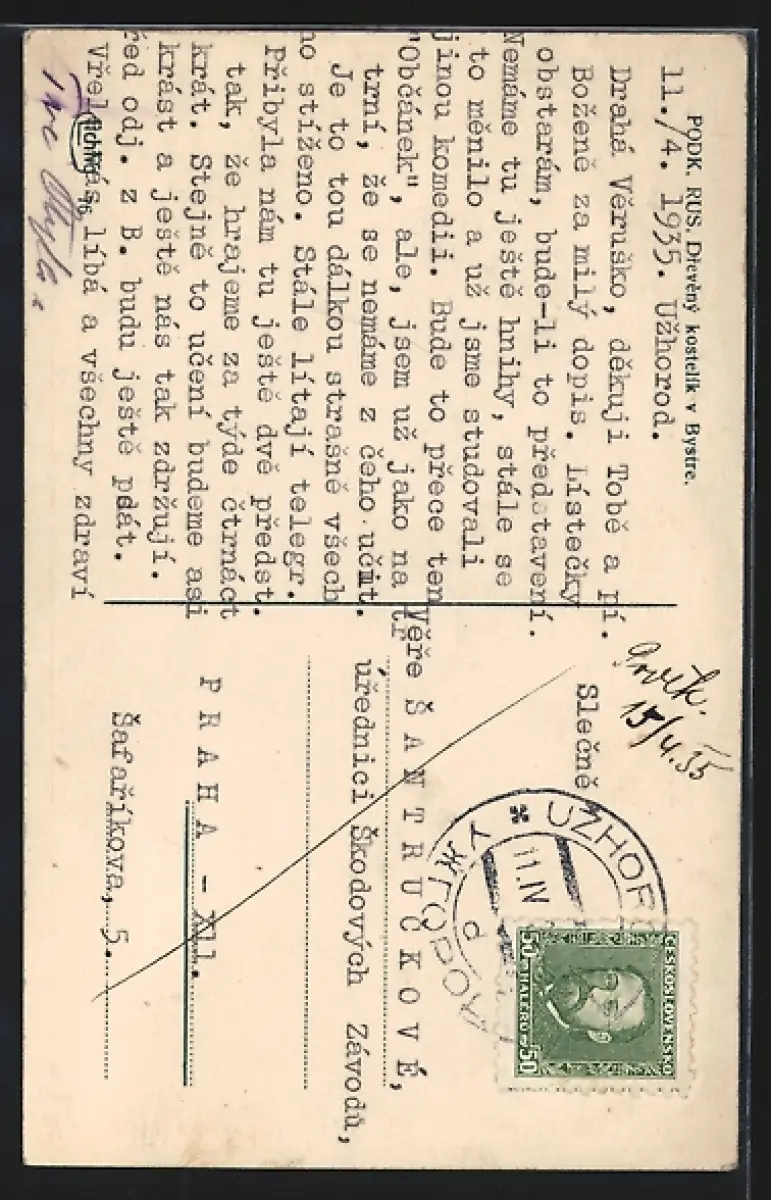 PODK. RUS. Dřevěný kostelík v Bystre.
11./4. 1935. Užhorod.
Drahá Věruško, děkuji Tobě a pí.
Boženě za milý dopis. Lístečky
obstarám, bude-li to představení.
Nemáme tu ještě hnihy, stále se
to měnilo a už jsme studovali
jinou komedii. Bude to přece ten
"Občánek", ale, jsem už jako na tr
trní, že se nemáme z čeho učit.
Je to tou dálkou strašně všech
no stíženo. Stále lítají telegr.
Přibyla nám tu ještě dvě předst.
tak, že hrajeme za týde čtrnáct
krát. Stejně to učení budeme asi
krást a ještě nás tak zdržují.
řed odj. z B. budu ještě psát.
Vřele Vás líbá a všechny zdraví
15/4.35
Slečně
Věře ŠANTRUČKOVÉ,
úřednici Škodových Závodů,
PRAHA - XII.
Šafaříkova, 5.
UŽHOROD
УЖГОРОД
11.IV
d
ČESKOSLOVENSKO
50 HALÉŘŮ 50